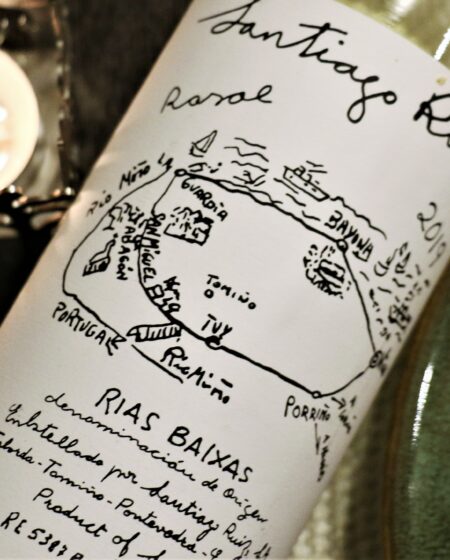 Santiago
Rosal
2019
Rio Miño
LA
GUARDIA
BAYONA
SAN MIGUEL
TABAGÓN
TOMIÑO
TUY
PORTUGAL
Rio Miño
PORRIÑO
RIAS BAIXAS
denominación de origen
Embotellado por Santiago Ruiz
Tomiño-Pontevedra-
Product of
RE 5387